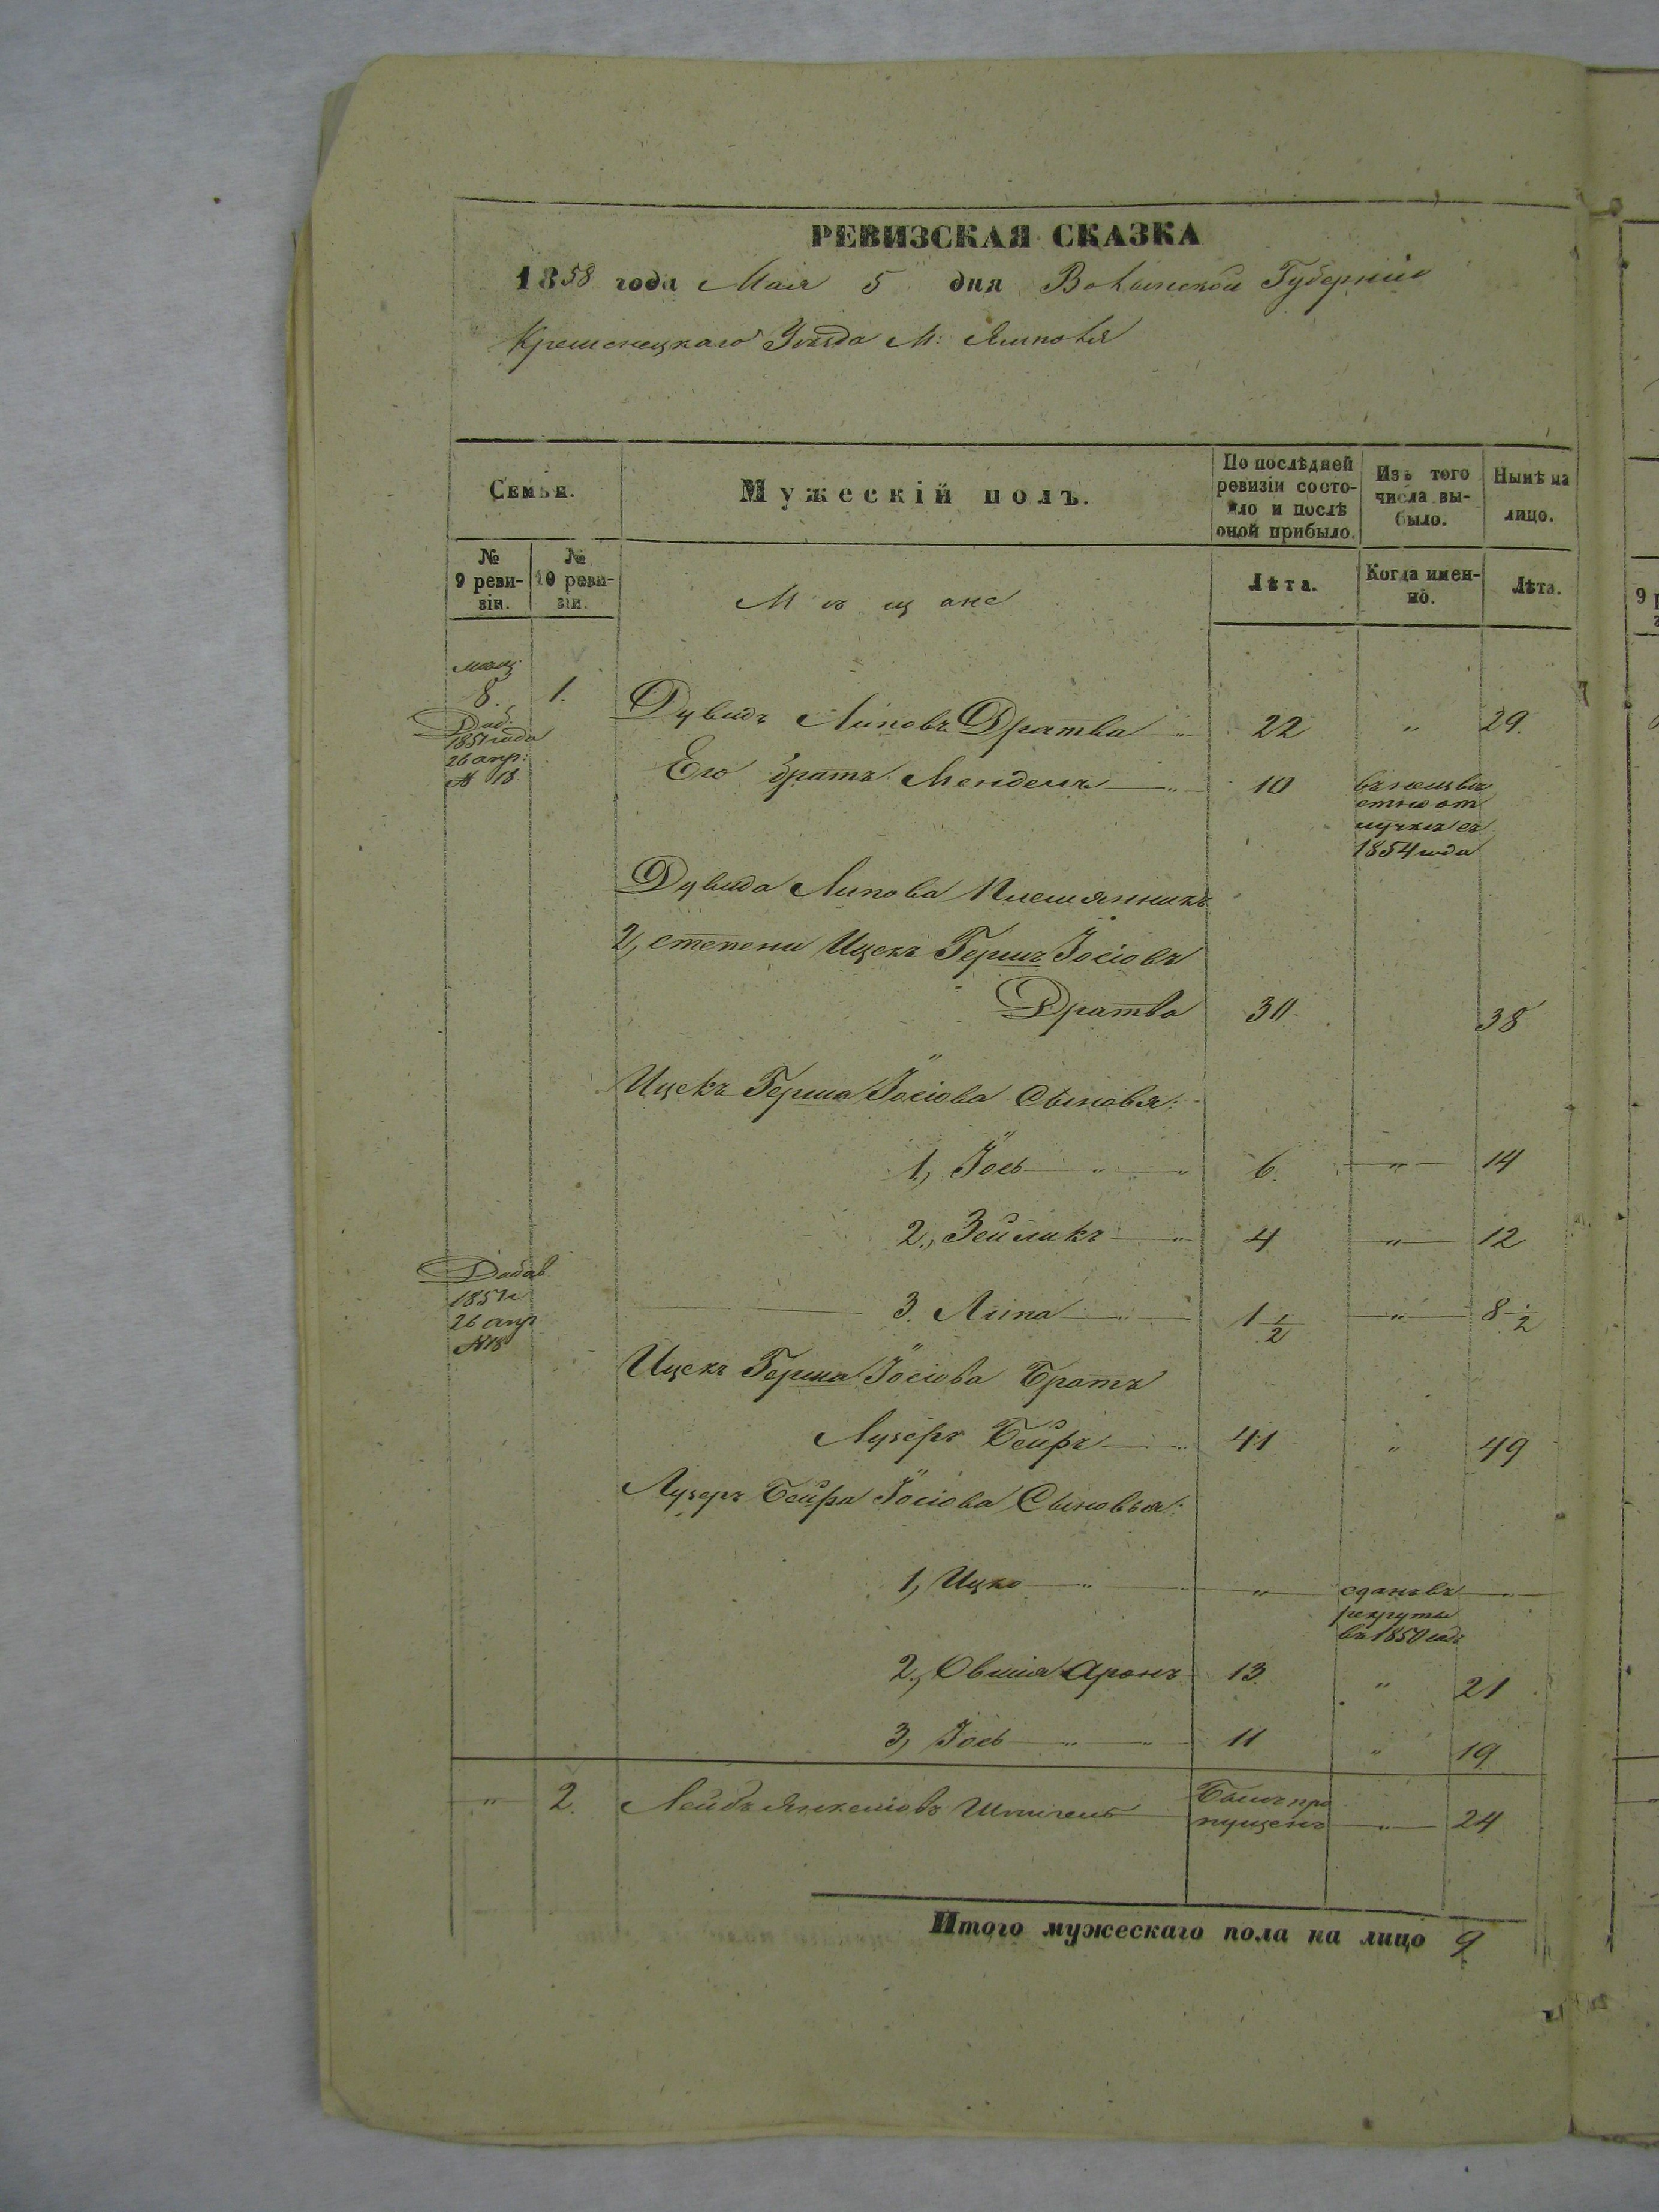 РЕВИЗСКАЯ СКАЗКА
1858 года Маія 5 дня Волынской Губерніи
Кременецкаго Уѣзда М: Ямполя
Семьи.
Мужескій полъ.
По послѣдней ревизіи состояло и послѣ оной прибыло.
Изъ того числа выбыло.
Нынѣ на лицо.
№ 9 ревизіи.
№ 10 ревизіи.
Мѣщане
Лѣта.
Когда именно.
Лѣта.
мѣщ:
8. 1. Дувидъ Липовъ Дратва 22 " 29.
Доб:
1851 года
26 апр:
№ 18
Его братъ Мендель 10 въ неизвѣ
стной от
лучкѣ съ
1854 года
Дувида Липова Племянникъ
2, степени Ицекъ Гершъ Іосіовъ
Дратва 30 38
Ицекъ Герша Іосіова Сыновья:
1, Іось 6. " 14
2, Зейликъ 4 " 12
Добав
1851 г
26 апр
№18
3. Липа 1 1/2 " 8 1/2
Ицекъ Герша Іосіова Братъ
Лузеръ Бейръ 41 " 49
Лузеръ Бейра Іосіова Сыновья:
1, Ицко " сданъ въ
рекруты
въ 1850 годѣ
2, Овшія Аронъ 13. " 21
3, Іось 11 " 19
" 2. Лейбъ Янкеліовъ Былъ про
пущенъ " 24
Итого мужескаго пола на лицо 9